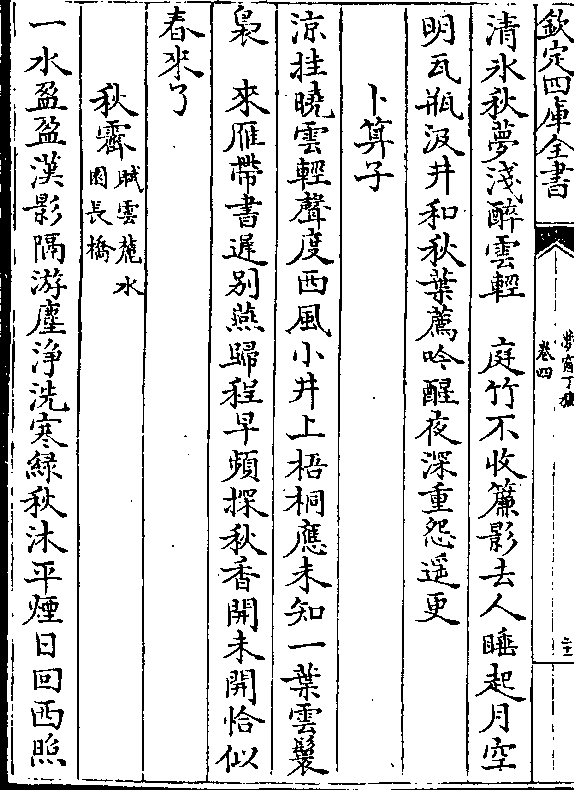 欽定四庫全書
夢窗丁稿
卷四
清氷秋夢淺醉雲輕　庭竹不收簾影去人睡起月空
明瓦瓶汲井和秋葉薦吟醒夜深重怨遥更
卜算子
涼挂曉雲輕聲度西風小井上梧桐應未知一葉雲鬟
裊　來雁帶書遲别燕歸程早頻探秋香開未開恰似
春來了
秋霽賦雲麓水
園長橋
一水盈盈漢影隔游塵浄洗寒緑秋沐平煙日回西照